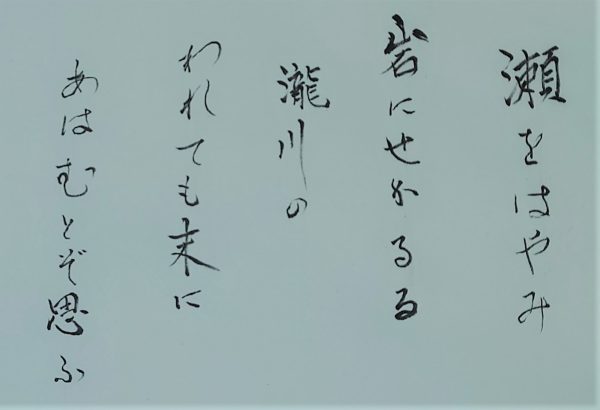 瀬をはやみ
岩にせかるる
瀧川の
われても末に
あはむとぞ思ふ